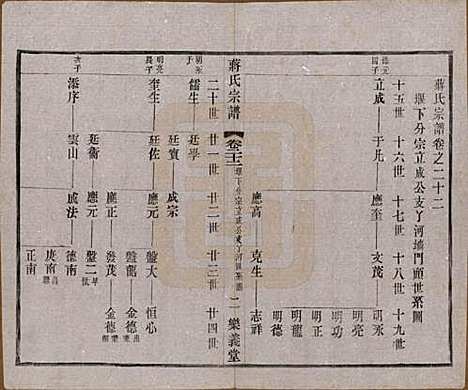 蔣氏宗譜卷之二十二
堰下分宗立成公支丫河墻門頭世系圖
十五世 十六世 十七世 十八世 十九世
立成 于凡 應奎 文茂 明永
明亮
明功
明正
明龍
明德
應高 克生 志祥
蔣氏宗譜
二 樂義堂
二十世 廿一世 廿二世 廿三世 廿四世
明永
儒生 廷學
廷賓 成宗
明亮
長子
奎生 廷佐 應元 盤大 恒心
盤龍 金德
應正 發茂 金德
廷衛 應元 盤二
次子
添序 雲山 成法 德南
庚南
正南